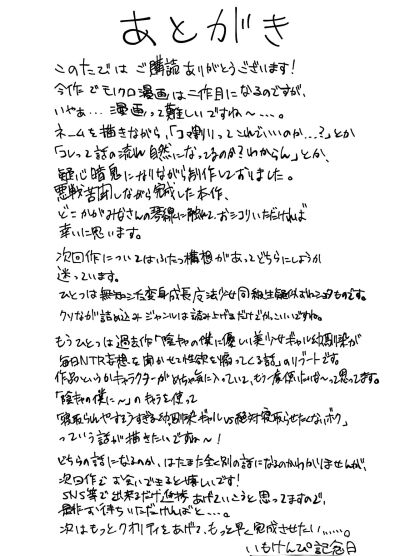 あとがき
このたびはご購読ありがとうございます!
今作でモノクロ漫画は二作目になるのですが、
いやぁ…漫画って難しいですね〜…。
ネームを描きながら、「コマ割りってこれでいいのか…?」とか
「コレって話の流れ自然になってるのか?わからん」とか、
疑心暗鬼になりながら制作しておりました。
悪戦苦闘しながら完成した本作、
どこかがみなさんの琴線に触れて、おシコりいただければ
幸いに思います。
次回作についてはふたつ構想があってどちらにしようか
迷っています。
ひとつは無知シチュ変身成長魔法少女同級生
ものです。
もうひとつは過去作「陰キャの僕に優しい美少女ギャル幼馴染が
毎日NTR妄想を聞かせて性欲を煽ってくる話」のリブートです。
作品というかキャラクターがめちゃ気に入っていて、もう一度使いたいな〜って思ってます。
「陰キャの僕に〜」のキャラを使って
「寝取られやすそうすぎる幼馴染ギャルVS絶対寝取らせたくないボク」
っていう話が描きたいですね〜!
どちらの話になるのか、はたまた全く別の話になるのかわかりませんが、
次回作でお会いできると嬉しいです!
SNS等で出来るだけ進捗あげていこうと思ってますので、
お待ちいただければと…。
次はもっとクオリティをあげて、もっと早く完成させたい……。
いもけんぴ記念日